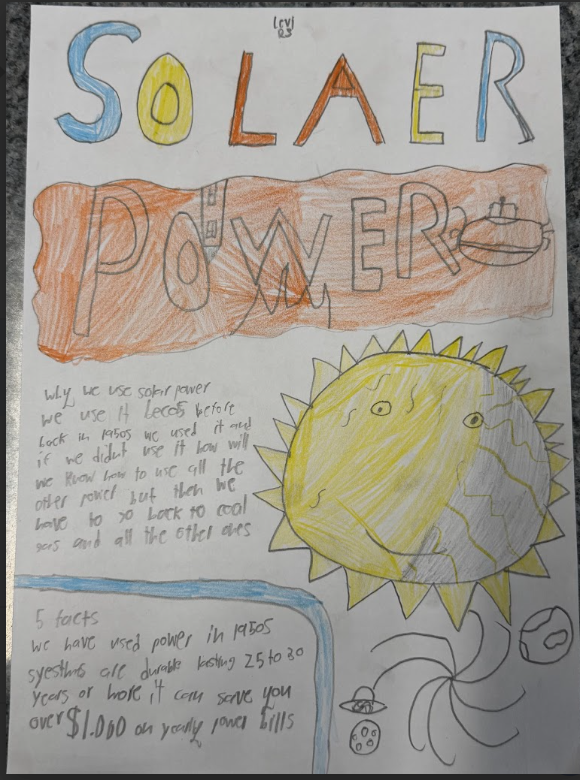 Levi
SOLAER
POWER
why we use solar power
we use it becos before
back in 1950s we used it and
if we didnt use it how will
we know how to use all the
other power but then we
have to go back to cool
gas and all the other ones
5 facts
we have used power in 1950s
are durable lasting 25 to 30
years or more it can save you
over $1.000 on yearly power bills